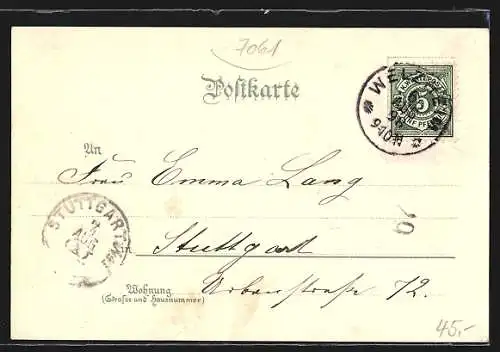 7061
Postkarte
WELZ
5
An
Frau Emma Lang
STUTTGART
AUG
in Stuttgart
Wohnung
(Strasse und Hausnummer)
Urbanstraße 72.
45.-